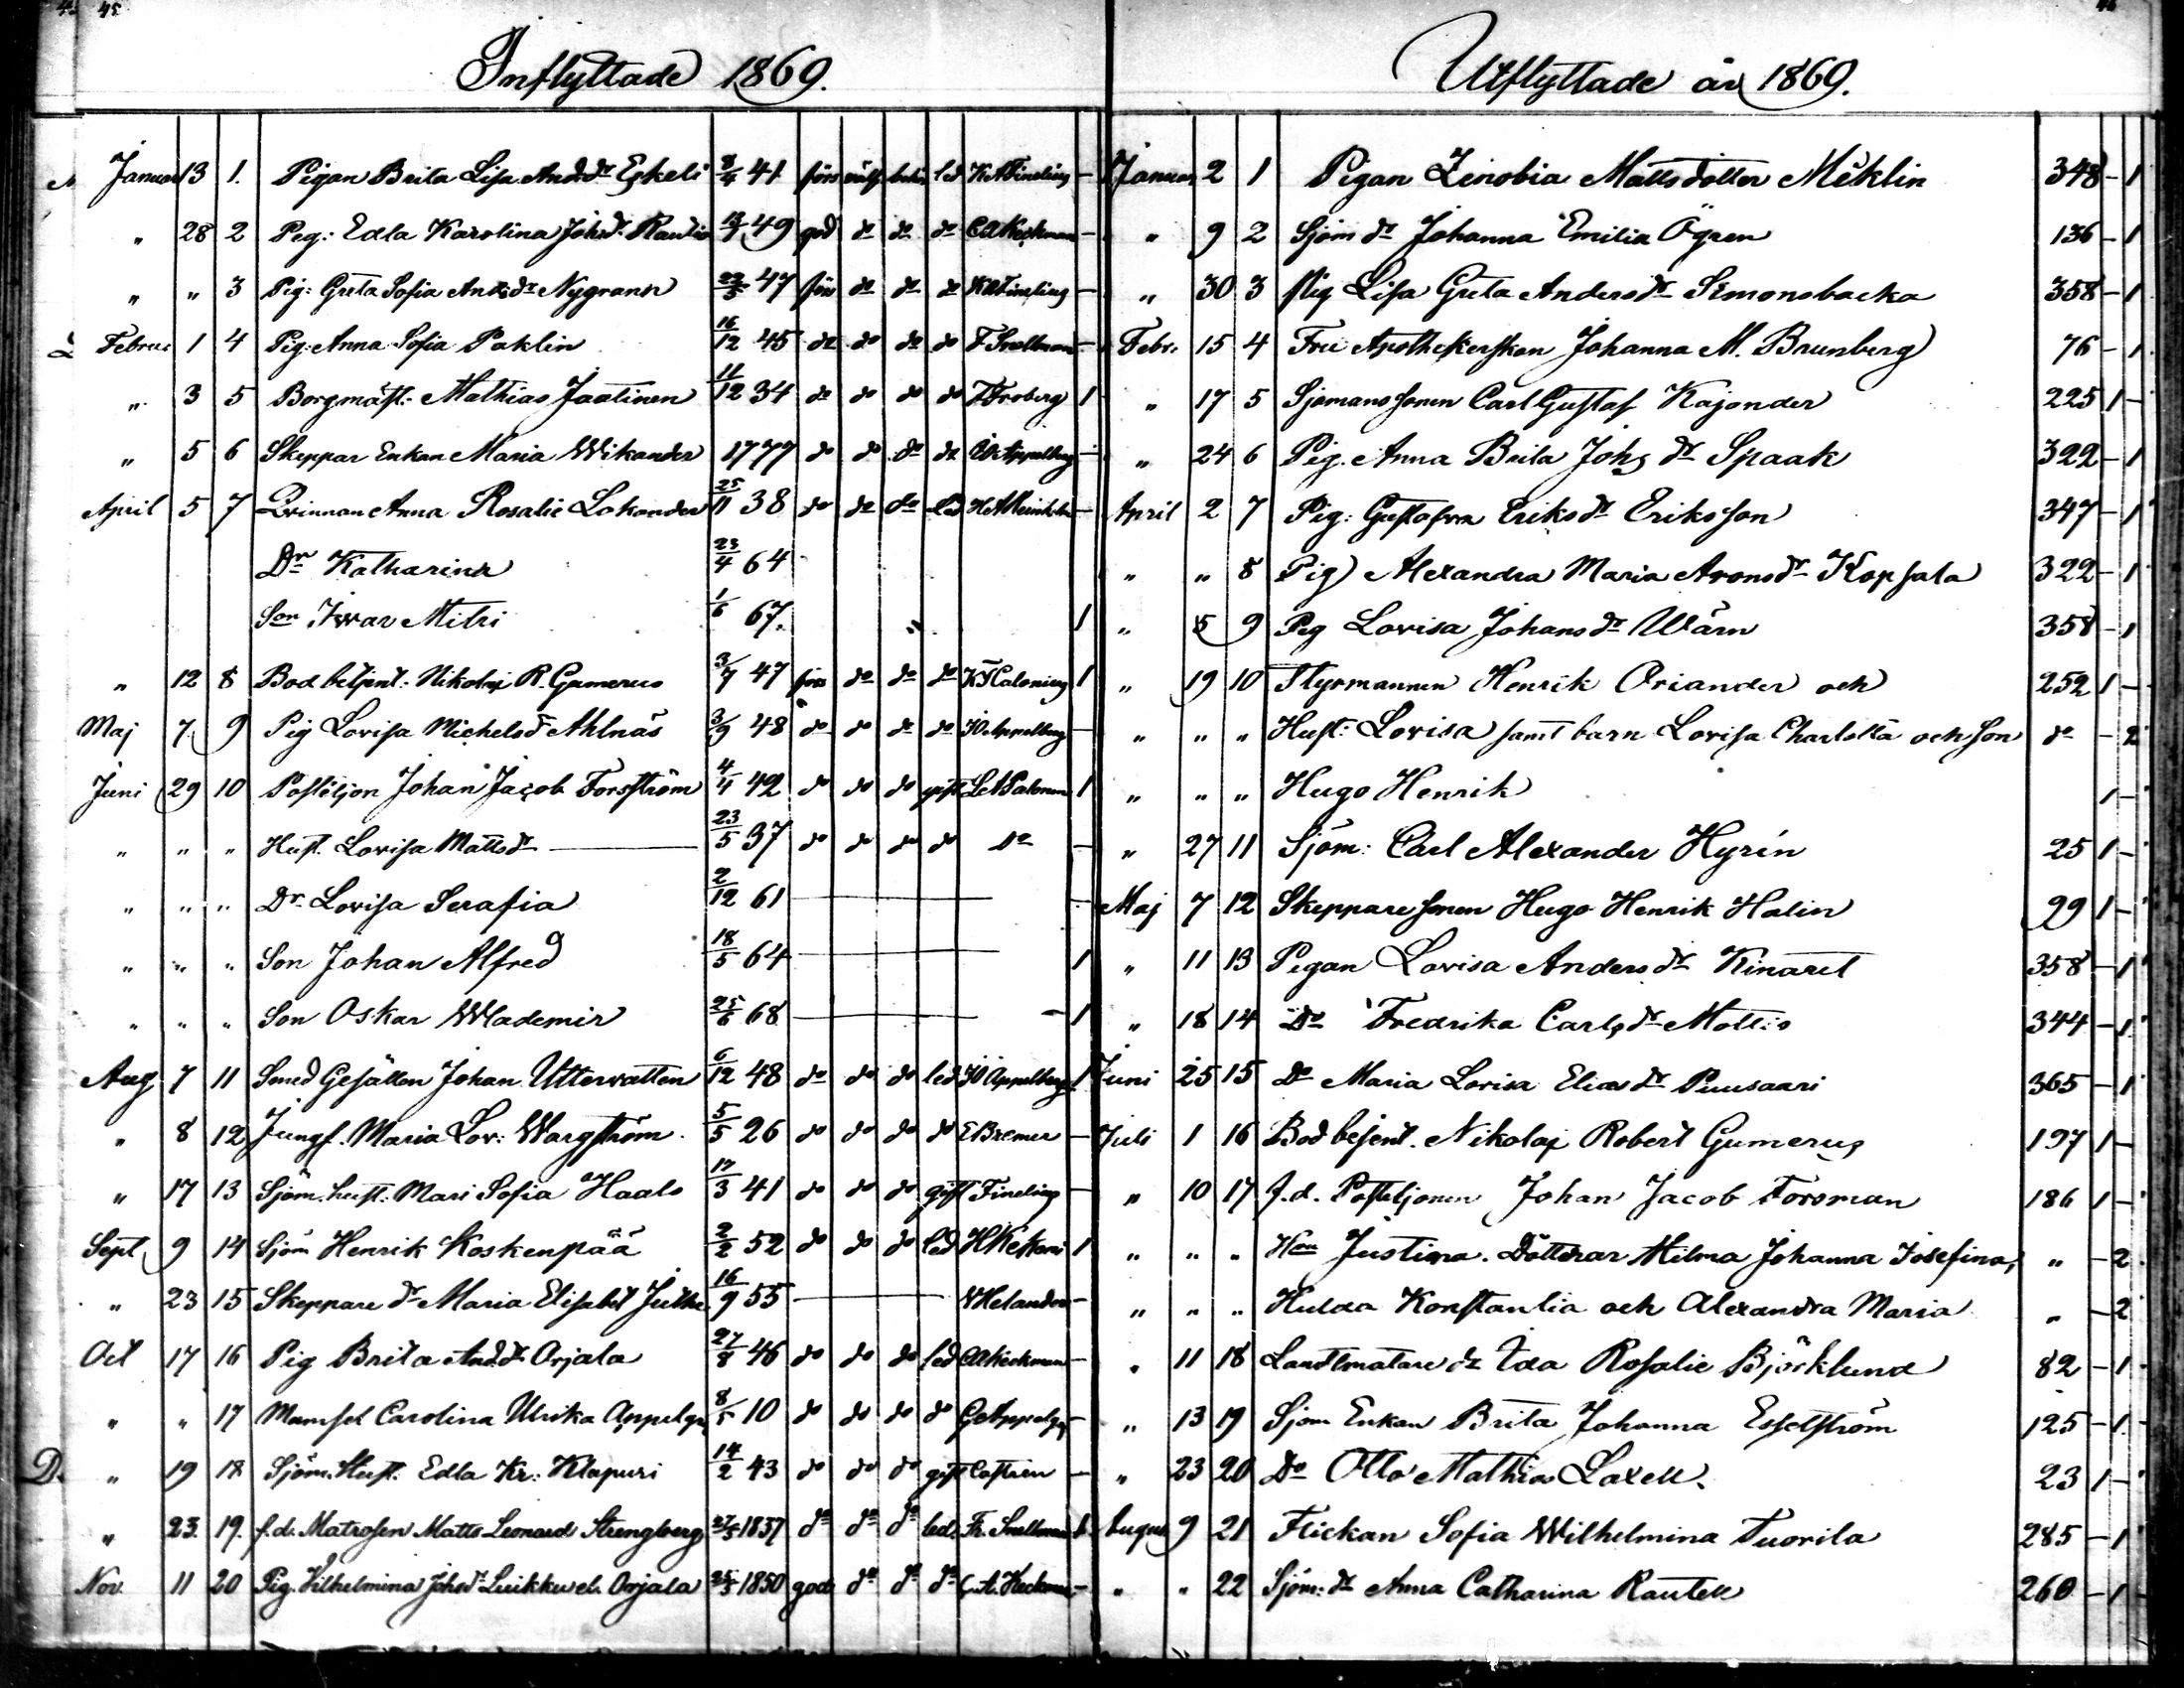 45
Inflyttade 1869.
Januari 13 1. Pigan Brita Lisa And.dr Eskeli 8/4 41 förs led K A Fineling -
" 28 2 Pig: Edla Karolina Johsdr Rautio 13/7 49 god do do do C A Keckman -
" " 3 Pig: Greta Sofia Andsdr Nygrann 22/5 47 förs do do do K A Fineling -
Februa 1 4 Pig: Anna Sofia Paklin 16/12 45 do do do do F Snellman -
" 3 5 Borgmäst: Mathias Jaatinen 11/12 34 do do do do F Froberg 1
" 5 6 Skeppar Enkan Maria Wikander 1777 do do do do Appelberg -
April 5 7 Qvinnan Anna Rosalie Lokander 25/11 38 do do do led -
Dr Katharina 23/4 64
Son Iwar Mitri 1/6 67. 1
" 12 8 Bod betjent: Nikolaj R. Gumerus 3/7 47 förs do do do K F Calonius 1
Maj 7 9 Pig Lovisa Michelsdr Ahlnäs 3/9 48 do do do do J O Appelberg -
Juni 29 10 Postiljon Johan Jacob Forsström 4/4 42 do do do gift 1
" " " Hust. Lovisa Mattsdr 23/5 37 do do do do Do -
" " " Dr. Lovisa Serafia 2/12 61 -
" " " Son Johan Alfred 18/5 64 1
" " " Son Oskar Wlademir 25/6 68 1
Aug 7 11 Smed Gesällen Johan Utterwatten 6/12 48 do do do led J O Appelberg 1
" 8 12 Jungf. Maria Lov: Wargström 5/5 26 do do do do E Bremer -
" 17 13 Sjöm. hust. Mari Sofia Haals 17/3 41 do do do gift Fineling -
Sept 9 14 Sjöm Henrik Koskenpää 2/2 52 do do do led H Kekoni 1
" 23 15 Skeppare dr Maria Elisabet 16/9 55 V Helander -
Oct 17 16 Pig Brita And.dr Orjala 27/8 46 do do do led C A Keckman -
" " 17 Mamsel Carolina Ulrika Appelgr 8/5 10 do do do do G Appelgr -
D. " 19 18 Sjöm. Hust. Edla Kr: Klapuri 14/2 43 do do do gift Castren -
" 23. 19. f.d. Matrosen Matts Leonard Strengberg 27/5 1837 do do do led. Fr. Snellman 1
Nov. 11 20 Pig. Vilhelmina Johsdr Luikku el. Orjala 25/5 1850 god do do do C. A. Keckman -
Utflyttade år 1869.
Januar 2 1 Pigan Zenobia Mattsdotter Meklin 348 - 1
" 9 2 Sjöm dr Johanna Emilia Ögren 136 - 1
" 30 3 Pig Lisa Greta Andersdr Simonsbacka 358 - 1
Febr. 15 4 Fru Apothekerskan Johanna M. Brunberg 76 - 1
" 17 5 Sjömans sonen Carl Gustaf Kajander 225 1 -
" 24 6 Pig. Anna Brita Johs dr Spaak 322 - 1
April 2 7 Pig: Gustafva Eriksdr Eriksson 347 - 1
" " 8 Pig Alexandra Maria Aronsdr Kopsala 322 - 1
" 5 9 Pig Lovisa Johansdr Wärn 358 - 1
" 19 10 Styrmannen Henrik Oriander och 252 1 -
" " " Hust: Lovisa samt barn Lovisa Charlotta och Son do - 2
" " " Hugo Henrik 1 -
" 27 11 Sjöm: Carl Alexander Hyrén 25 1 -
Maj 7 12 Skeppare sonen Hugo Henrik Halin 29 1 -
" 11 13 Pigan Lovisa Andersdr Kinaret 358 - 1
" 18 14 Do Fredrika Carlsdr Mattis 344 - 1
Juni 25 15 Do Maria Lovisa Eliasdr Puusaari 365 - 1
Juli 1 16 Bod besent. Nikolaj Robert Gumerus 197 1 -
" 10 17 f.d. Postiljonen Johan Jacob Forsman 186 1 -
" " " Hun Justina. Döttrar Hilma Johanna Josefina, " - 2
" " " Hulda Konstantia och Alexandra Maria " - 2
" 11 18 Landtmätare dr Ida Rosalie Björklund 82 - 1
" 13 19 Sjöm Enkan Brita Johanna Esselström 125 - 1
" 23 20 Do Otto Mathias Laxell. 23 1 -
August 9 21 Flickan Sofia Wilhelmina Tuorila 285 - 1
" " 22 Sjöm: dr Anna Catharina Rautell 260 - 1